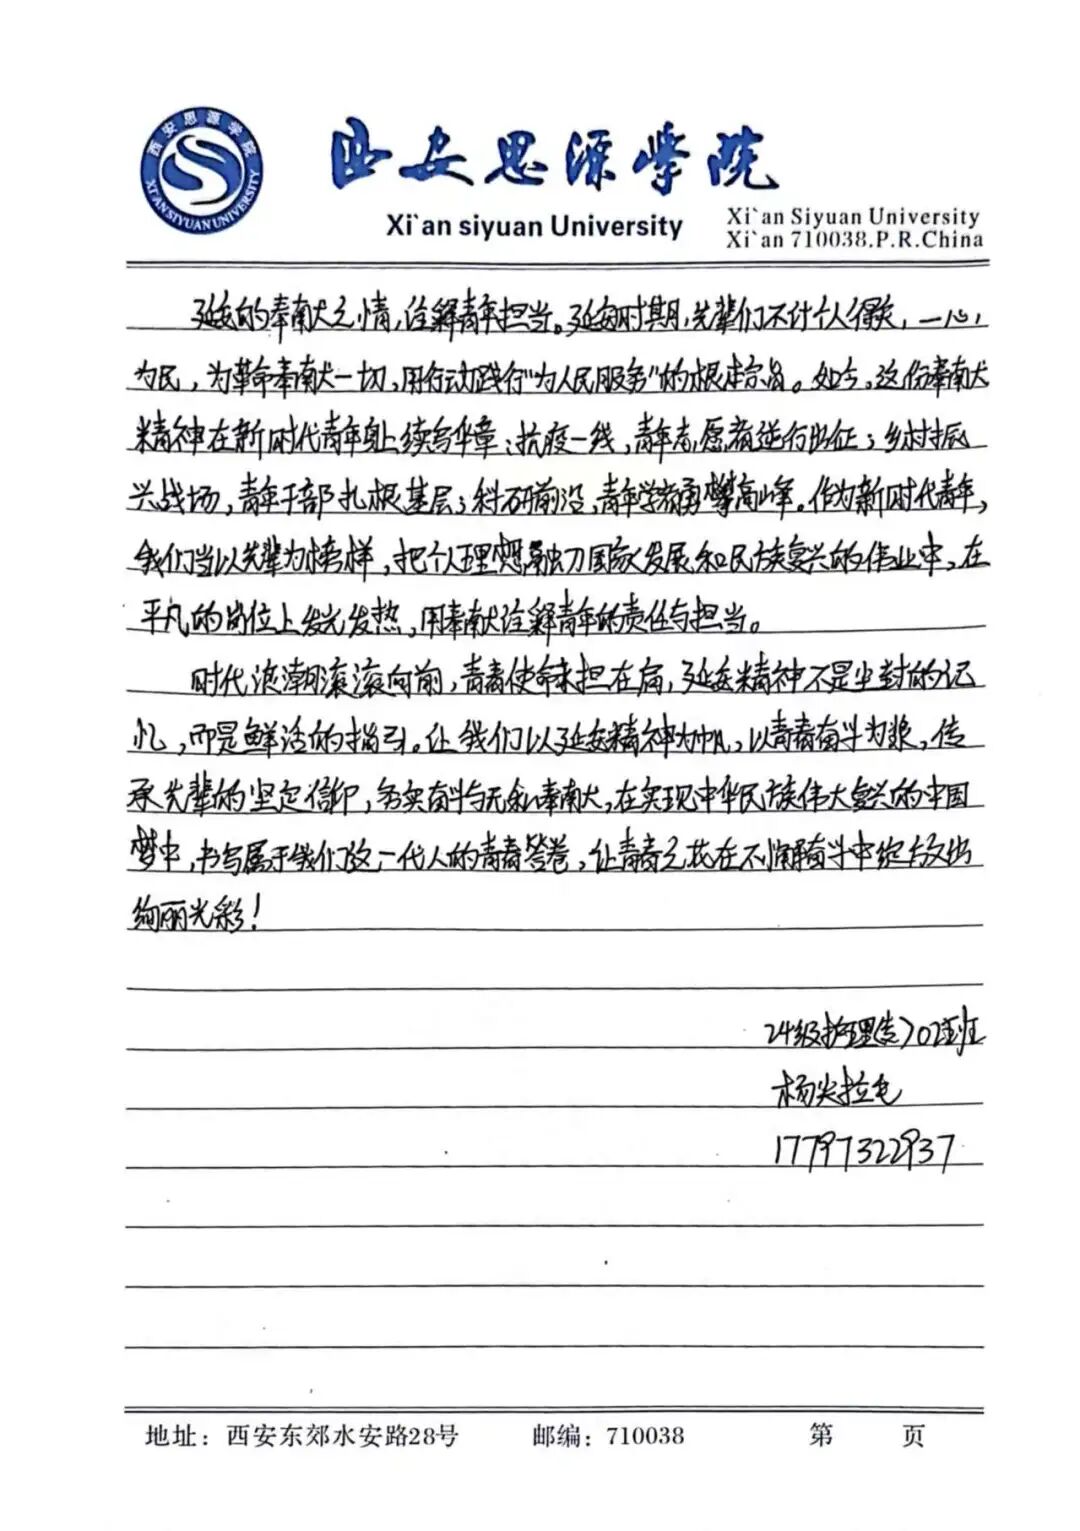 西安思源学院
XI'AN SIYUAN UNIVERSITY
西安思源学院
Xi`an siyuan University
Xi`an Siyuan University
Xi`an 710038.P.R.China
延安的奉献之情,诠释青年担当。延安时期,先辈们不计个人得失,一心
为民,为革命奉献一切,用行动践行"为人民服务"的根本宗旨。如今,这份奉献
精神在新时代青年身上续写华章:抗疫一线,青年志愿者逆行出征;乡村振
兴战场,青年干部扎根基层;科研前沿,青年学者勇攀高峰。作为新时代青年,
我们当以先辈为榜样,把个人理想融入国家发展和民族复兴的伟业中,在
平凡的岗位上发光发热,用奉献诠释青年的责任与担当。
时代浪潮滚滚向前,青春使命担在肩,延安精神不是尘封的记
忆,而是鲜活的指引。让我们以延安精神为帆,以青春奋斗为桨,传
承先辈的坚定信仰,务实奋斗与无私奉献,在实现中华民族伟大复兴的中国
梦中,书写属于我们这一代人的青春答卷,让青春之花在不懈奋斗中绽放出
绚丽光彩!
24级护理 02班
杨尖拉毛
17797322937
地址:西安东郊水安路28号 邮编:710038 第 页